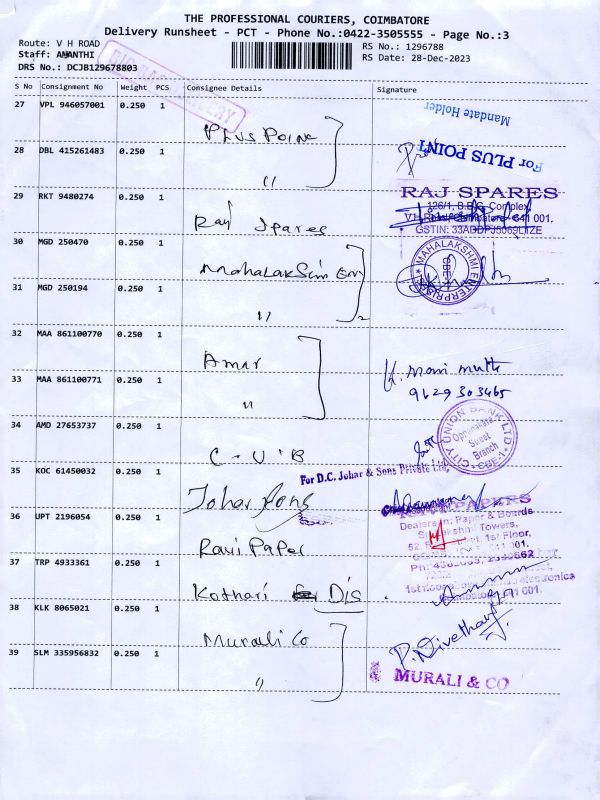 THE PROFESSIONAL COURIERS, COIMBATORE
Delivery Runsheet - PCT - Phone No.:0422-3505555 - Page No.:3
Route: V H ROAD
RS No.: 1296788
Staff: ANANTHI
RS Date: 28-Dec-2023
DRS No.: DCJB129678803
S No Consignment No Weight PCS Consignee Details Signature
27 VPL 946057001 0.250 1 Plus Point
Mandate Holder
28 DBL 415261483 0.250 1 "
For PLUS POINT
29 RKT 9480274 0.250 1 Raj Spares
RAJ SPARES
126/1, B.B.S. Complex,
641 001.
30 MGD 250470 0.250 1 Mahalaksim Em
MAHALAKSHMI ENTERPRISES
31 MGD 250194 0.250 1 "
32 MAA 861100770 0.250 1 Amar
K. mani muth
33 MAA 861100771 0.250 1 "
9629303465
34 AMD 27653737 0.250 1 C-U'B
CITY UNION BANK LTD
Oppanakara
Street
Branch
CBE-1
35 KOC 61450032 0.250 1 Johar Sons
For D.C. Johar & Sons Private Ltd
36 UPT 2196054 0.250 1 Ravi Paper
PAPERS
Dealers in: Paper & Boards
Towers,
1st Floor,
37 TRP 4933361 0.250 1 Kothari Dis
electronics
38 KLK 8065021 0.250 1 Murali Co
P. Nivetha
39 SLM 335956832 0.250 1 "
MURALI & CO